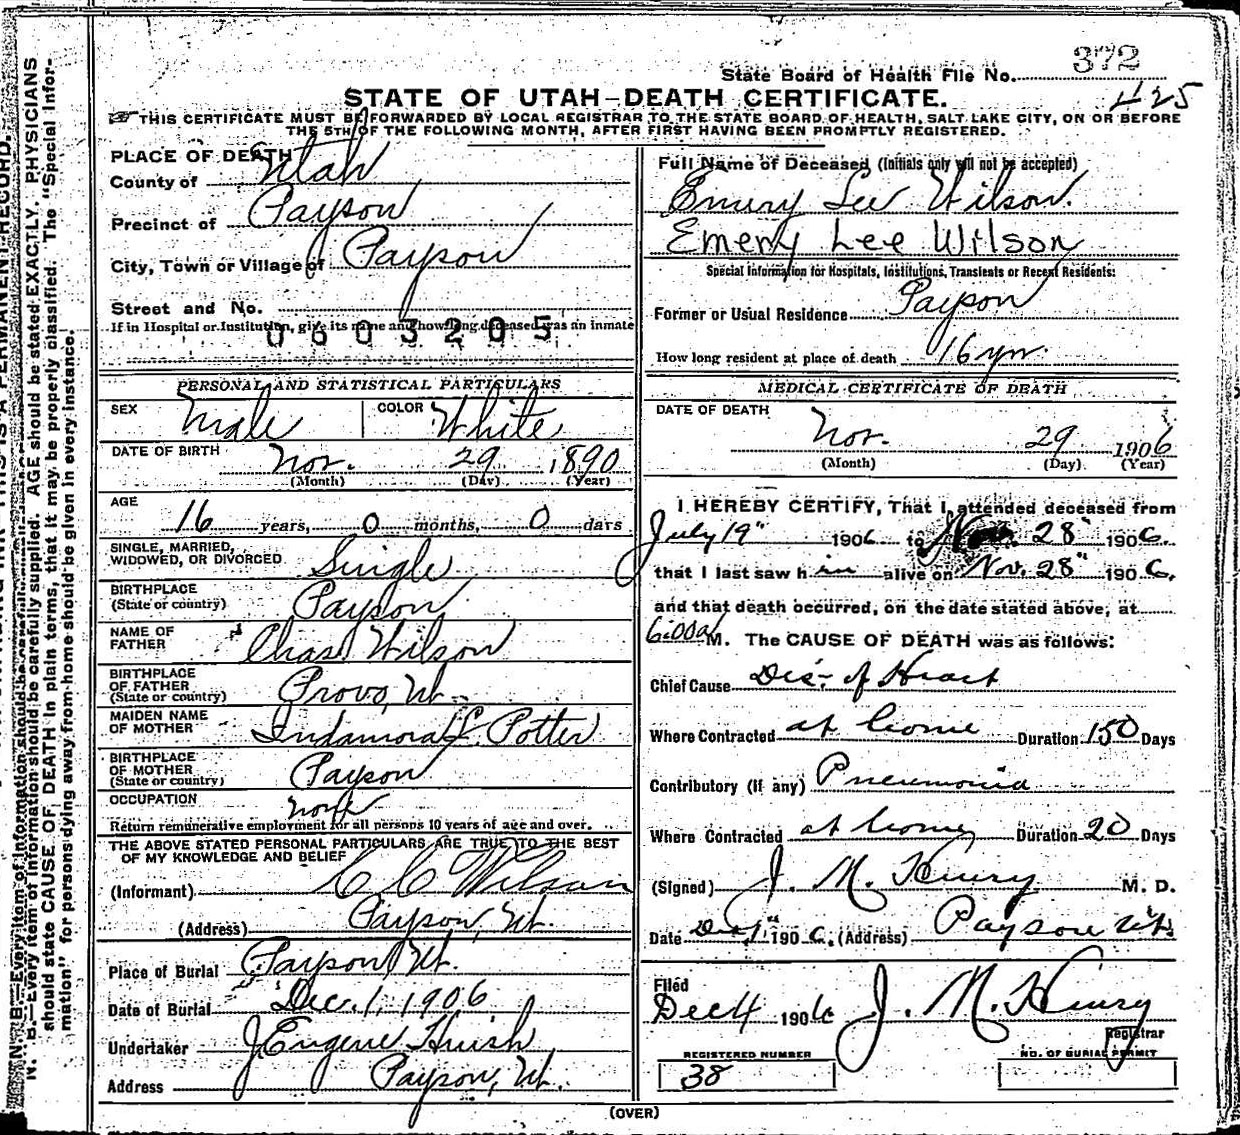 State Board of Health File No. 372
425
STATE OF UTAH—DEATH CERTIFICATE.
THIS CERTIFICATE MUST BE FORWARDED BY LOCAL REGISTRAR TO THE STATE BOARD OF HEALTH, SALT LAKE CITY, ON OR BEFORE
THE 5TH OF THE FOLLOWING MONTH, AFTER FIRST HAVING BEEN PROMPTLY REGISTERED.
PLACE OF DEATH
County of Utah
Precinct of Payson
City, Town or Village of Payson
Street and No.
If in Hospital or Institution, give its name and how long deceased was an inmate
0603205
PERSONAL AND STATISTICAL PARTICULARS
SEX Male COLOR White
DATE OF BIRTH Nov. 29 1890
(Month) (Day) (Year)
AGE 16 years, 0 months, 0 days
SINGLE, MARRIED,
WIDOWED, OR DIVORCED Single
BIRTHPLACE
(State or country) Payson
NAME OF
FATHER Chas. Wilson
BIRTHPLACE
OF FATHER
(State or country) Provo, Ut.
MAIDEN NAME
OF MOTHER Indamora L. Potter
BIRTHPLACE
OF MOTHER
(State or country) Payson
OCCUPATION none
Return remunerative employment for all persons 10 years of age and over.
THE ABOVE STATED PERSONAL PARTICULARS ARE TRUE TO THE BEST
OF MY KNOWLEDGE AND BELIEF
(Informant) C C Wilson
(Address) Payson, Ut.
Place of Burial Payson, Ut.
Date of Burial Dec. 1, 1906
Undertaker J Eugene Huish
Address Payson, Ut.
Full Name of Deceased (Initials only will not be accepted)
Emery Lee Wilson.
Emery Lee Wilson
Special Information for Hospitals, Institutions, Transients or Recent Residents:
Former or Usual Residence Payson
How long resident at place of death 16 yrs.
MEDICAL CERTIFICATE OF DEATH
DATE OF DEATH
Nov. 29 1906
(Month) (Day) (Year)
I HEREBY CERTIFY, That I attended deceased from
July 19" 1906 to Nov. 28" 1906.
that I last saw him alive on Nov. 28" 1906.
and that death occurred, on the date stated above, at
6:00 a M. The CAUSE OF DEATH was as follows:
Chief Cause Dis- of Heart
Where Contracted at home Duration 150 Days
Contributory (if any) Pneumonia
Where Contracted at home Duration 20 Days
(Signed) J. M. Henry M. D.
Date Dec 1" 1906. (Address) Payson Ut.
Filed
Dec 4 1906 J. M. Henry
Registrar
REGISTERED NUMBER
38
NO. OF BURIAL PERMIT
(OVER)
N. B.—Every item of information should be carefully supplied. AGE should be stated EXACTLY. PHYSICIANS
should state CAUSE OF DEATH in plain terms, that it may be properly classified. The "Special Infor-
mation" for persons dying away from home should be given in every instance.